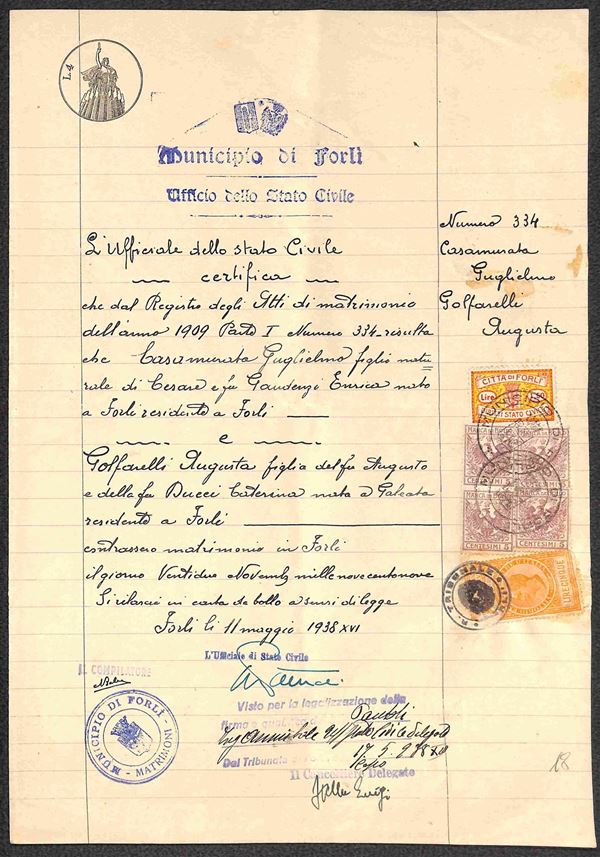 L.4
Municipio di Forlì
Ufficio dello Stato Civile
Numero 334
Casamurata
Guglielmo
Golfarelli
Augusta
L'Ufficiale dello stato Civile
certifica
che dal Registro degli Atti di matrimonio
dell'anno 1909 Parte I Numero 334 risulta
che Casamurata Guglielmo figlio natu=
rale di Cesare e fu Gaudenzi Enrica nato
a Forlì residente a Forlì
e
Golfarelli Augusta figlia del fu Augusto
e della fu Ducci Caterina nata a Galeata
residente a Forlì
contrassero matrimonio in Forlì
il giorno Ventidue Novemb. mille novecentonove
Si rilascia in carta da bollo a sensi di legge
Forlì li 11 maggio 1938 XVI
CITTÀ DI FORLÌ
Lire
STATO CIVILE
MARCA DA
CENTESIMI 5
CENTESIMI 5
LIRE CINQUE
TRIBUNALE
L'Ufficiale di Stato Civile
IL COMPILATORE
MUNICIPIO DI FORLÌ - MATRIMONI
Visto per la legalizzazione della
firma
Dal Tribunale
Il Cancelliere Delegato
18